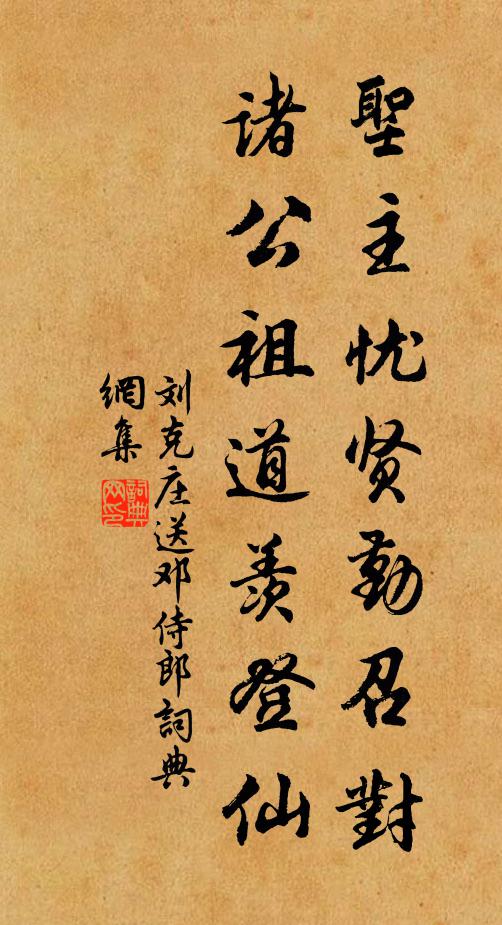 聖主忧贤勤召對
诸公祖道羨登仙
刘克庄送邓侍郎詞典
網集
詞典
网印